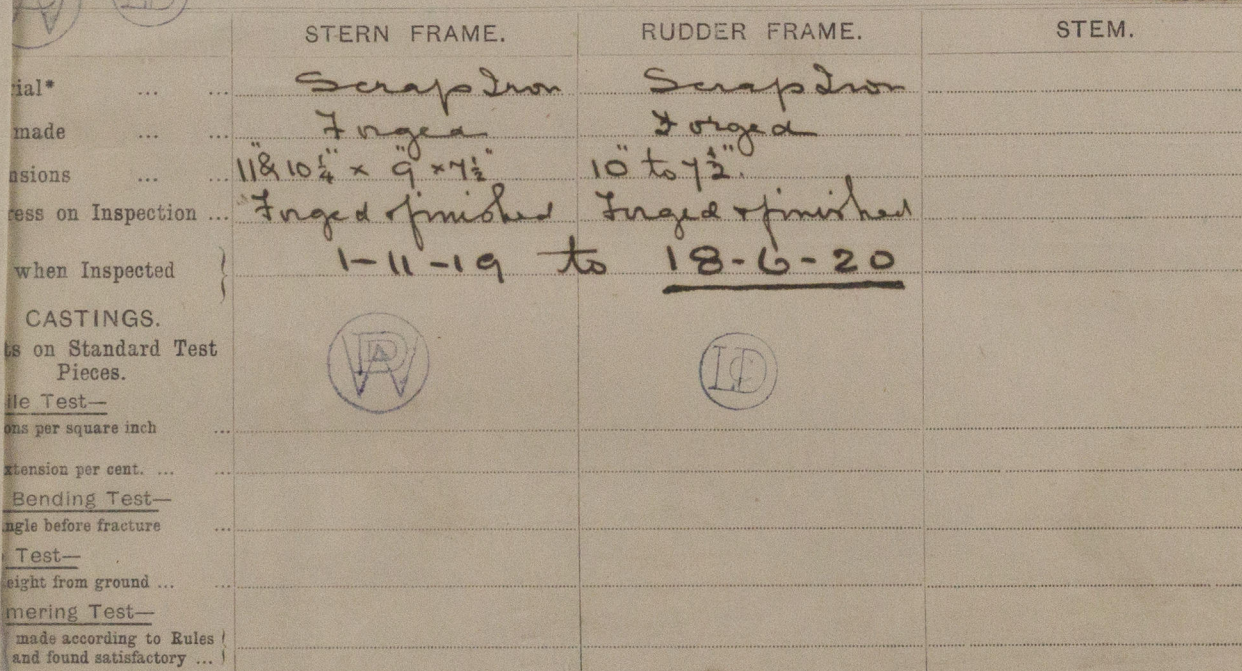 STERN FRAME. RUDDER FRAME. STEM.
rial* ... ... Scrap Iron Scrap Iron
made ... ... Forged Forged
nsions ... ... 11"& 10 1/4" x 9" x 7 1/2" 10" to 7 1/2".
ess on Inspection ... Forged & finished Forged & finished
when Inspected 1-11-19 to 18-6-20
CASTINGS.
ts on Standard Test
Pieces.
ile Test—
ons per square inch ...
xtension per cent. ... ...
Bending Test—
ngle before fracture ...
Test—
eight from ground ... ...
mering Test—
made according to Rules
and found satisfactory ...